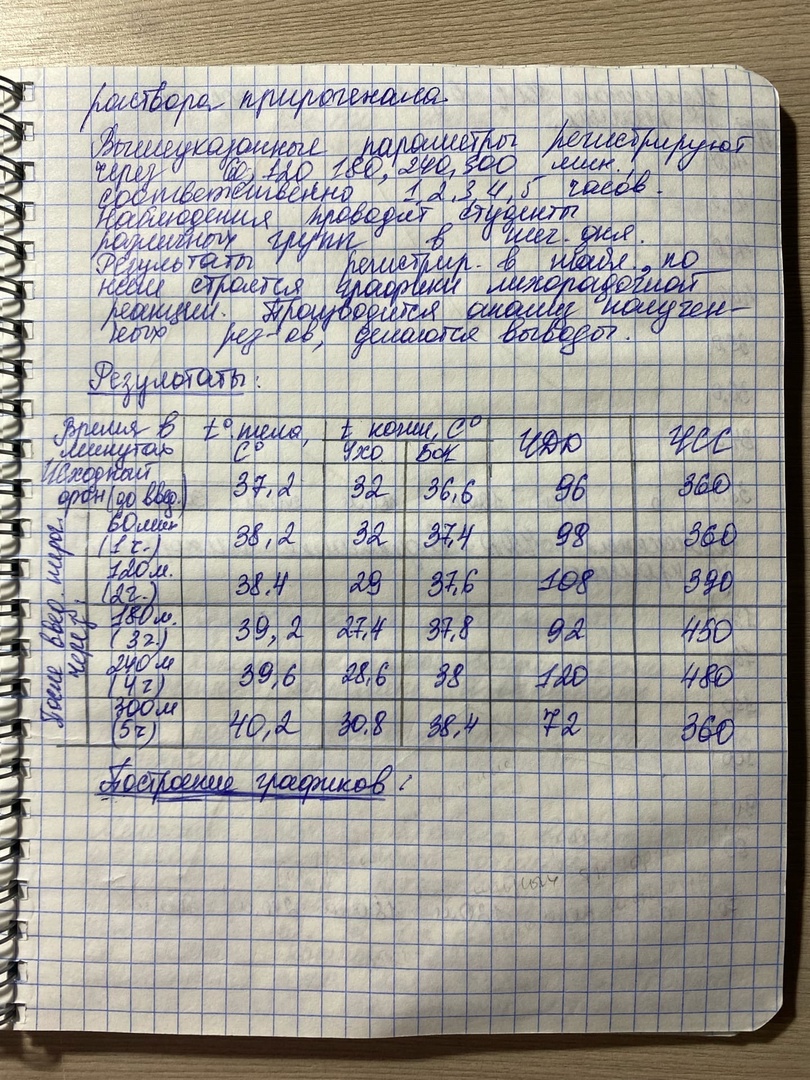 раствора пирогенала.
Вышеуказанные параметры регистрируют
через 60, 120 180, 240, 300 мин.,
соответственно 1, 2, 3, 4, 5 часов.
Наблюдения проводят студенты
различных групп в теч. дня.
Результаты регистрир. в табл., по
ней строятся графики лихорадочной
реакции. Производится анализ получен-
ных рез-ов, делаются выводы.
Результаты:
Время в минутах t° тела, С° t кожи, С° Ухо Бок ЧДД ЧСС
Исходный фон (до введ.) 37,2 32 36,6 96 360
После введ. пирог. через:
60 мин (1 ч.) 38,2 32 37,4 98 360
120 м. (2 ч.) 38.4 29 37,6 108 390
180 м. (3 ч.) 39,2 27,4 37,8 92 450
240 м (4 ч) 39,6 28,6 38 120 480
300 м (5 ч) 40,2 30.8 38,4 72 360
Построение графиков: